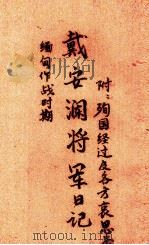 附：殉国经过及各方哀思
戴安澜将军日记
缅甸作战时期